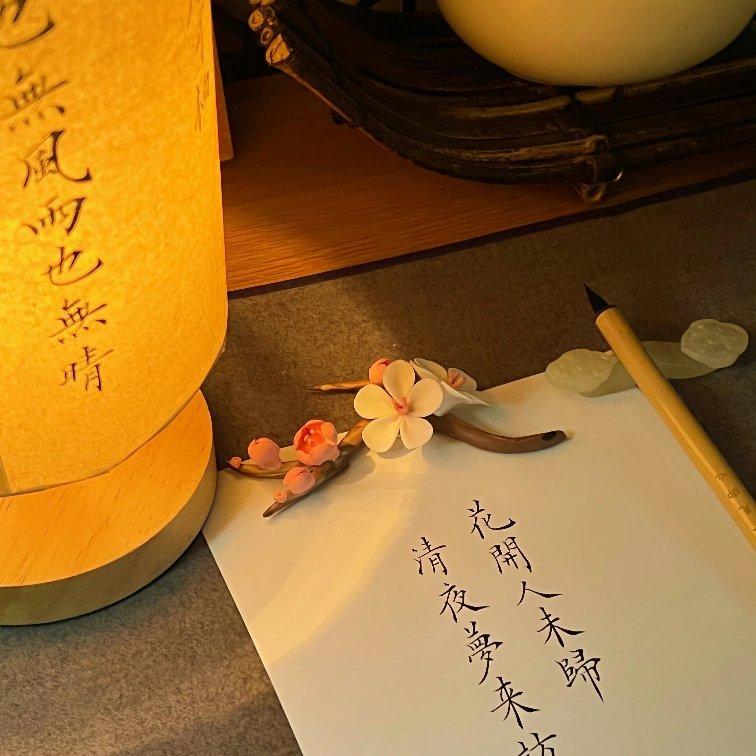 也無風雨也無晴
花開人未歸
清夜夢来訪